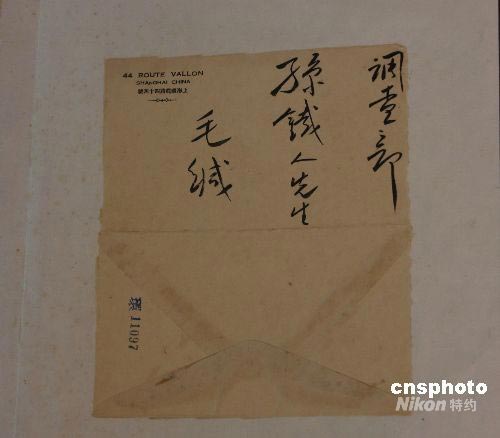 44 ROUTE VALLON
SHANGHAI CHINA
上海環龍路四十四號
調查部
孫鐵人先生
毛缄
11097
cnsphoto
Nikon 特约